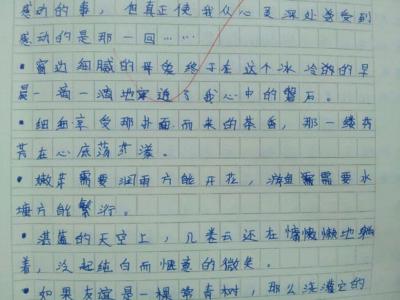 感动的事，但真正使我从心灵深处感受到
感动的是那一回……
•窗边细腻的母爱终于在这个冰冷的早
晨一滴一滴地穿透了我心中的磐石。
•细细享受那扑面而来的茶香，那一缕芬
芳在心底荡荡漾。
•嫩芽需要润雨方能开花，游鱼需要水
塘方能繁衍。
•湛蓝的天空上，几卷云还在慵懒地躺
着，泛起纯白而惬意的微笑。
•如果友谊是一棵常青树，那么浇灌它的